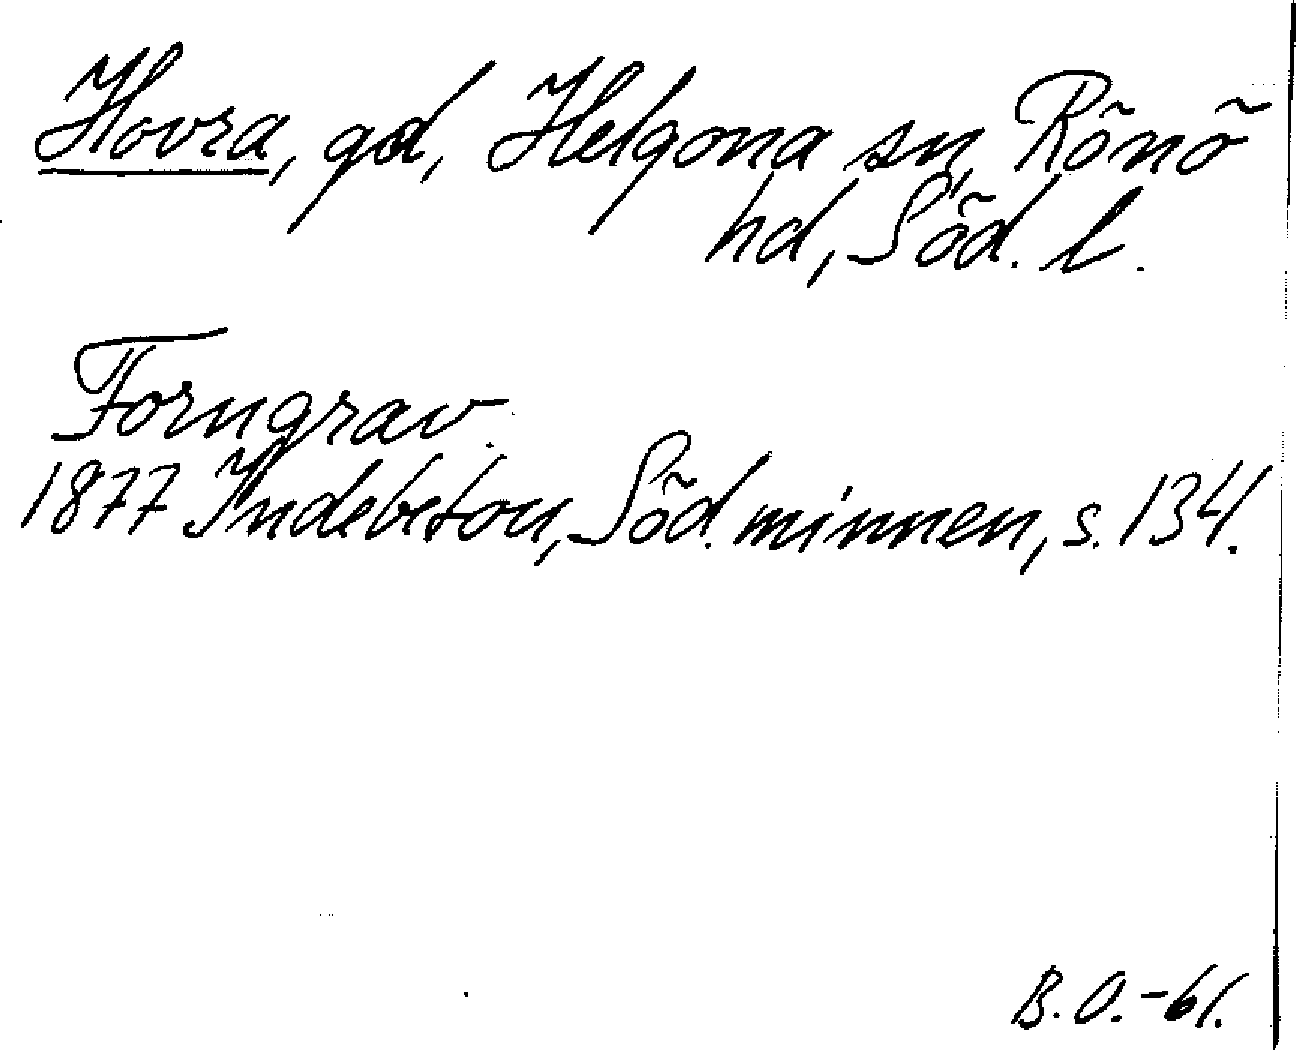 Hovra, gd, Helgona sn, Rönö
hd, Söd. l.
Forngrav.
1877 Indebetou, Söd. minnen, s. 134.
B.O.-61.